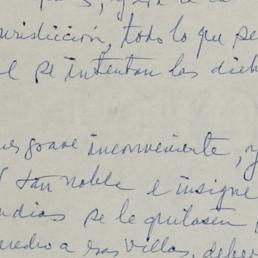 jurisdicción, todo lo que pe
se intentan las dich
grave inconveniente, y
tan noble e insigne
se le quitasen
a esas villas, deber